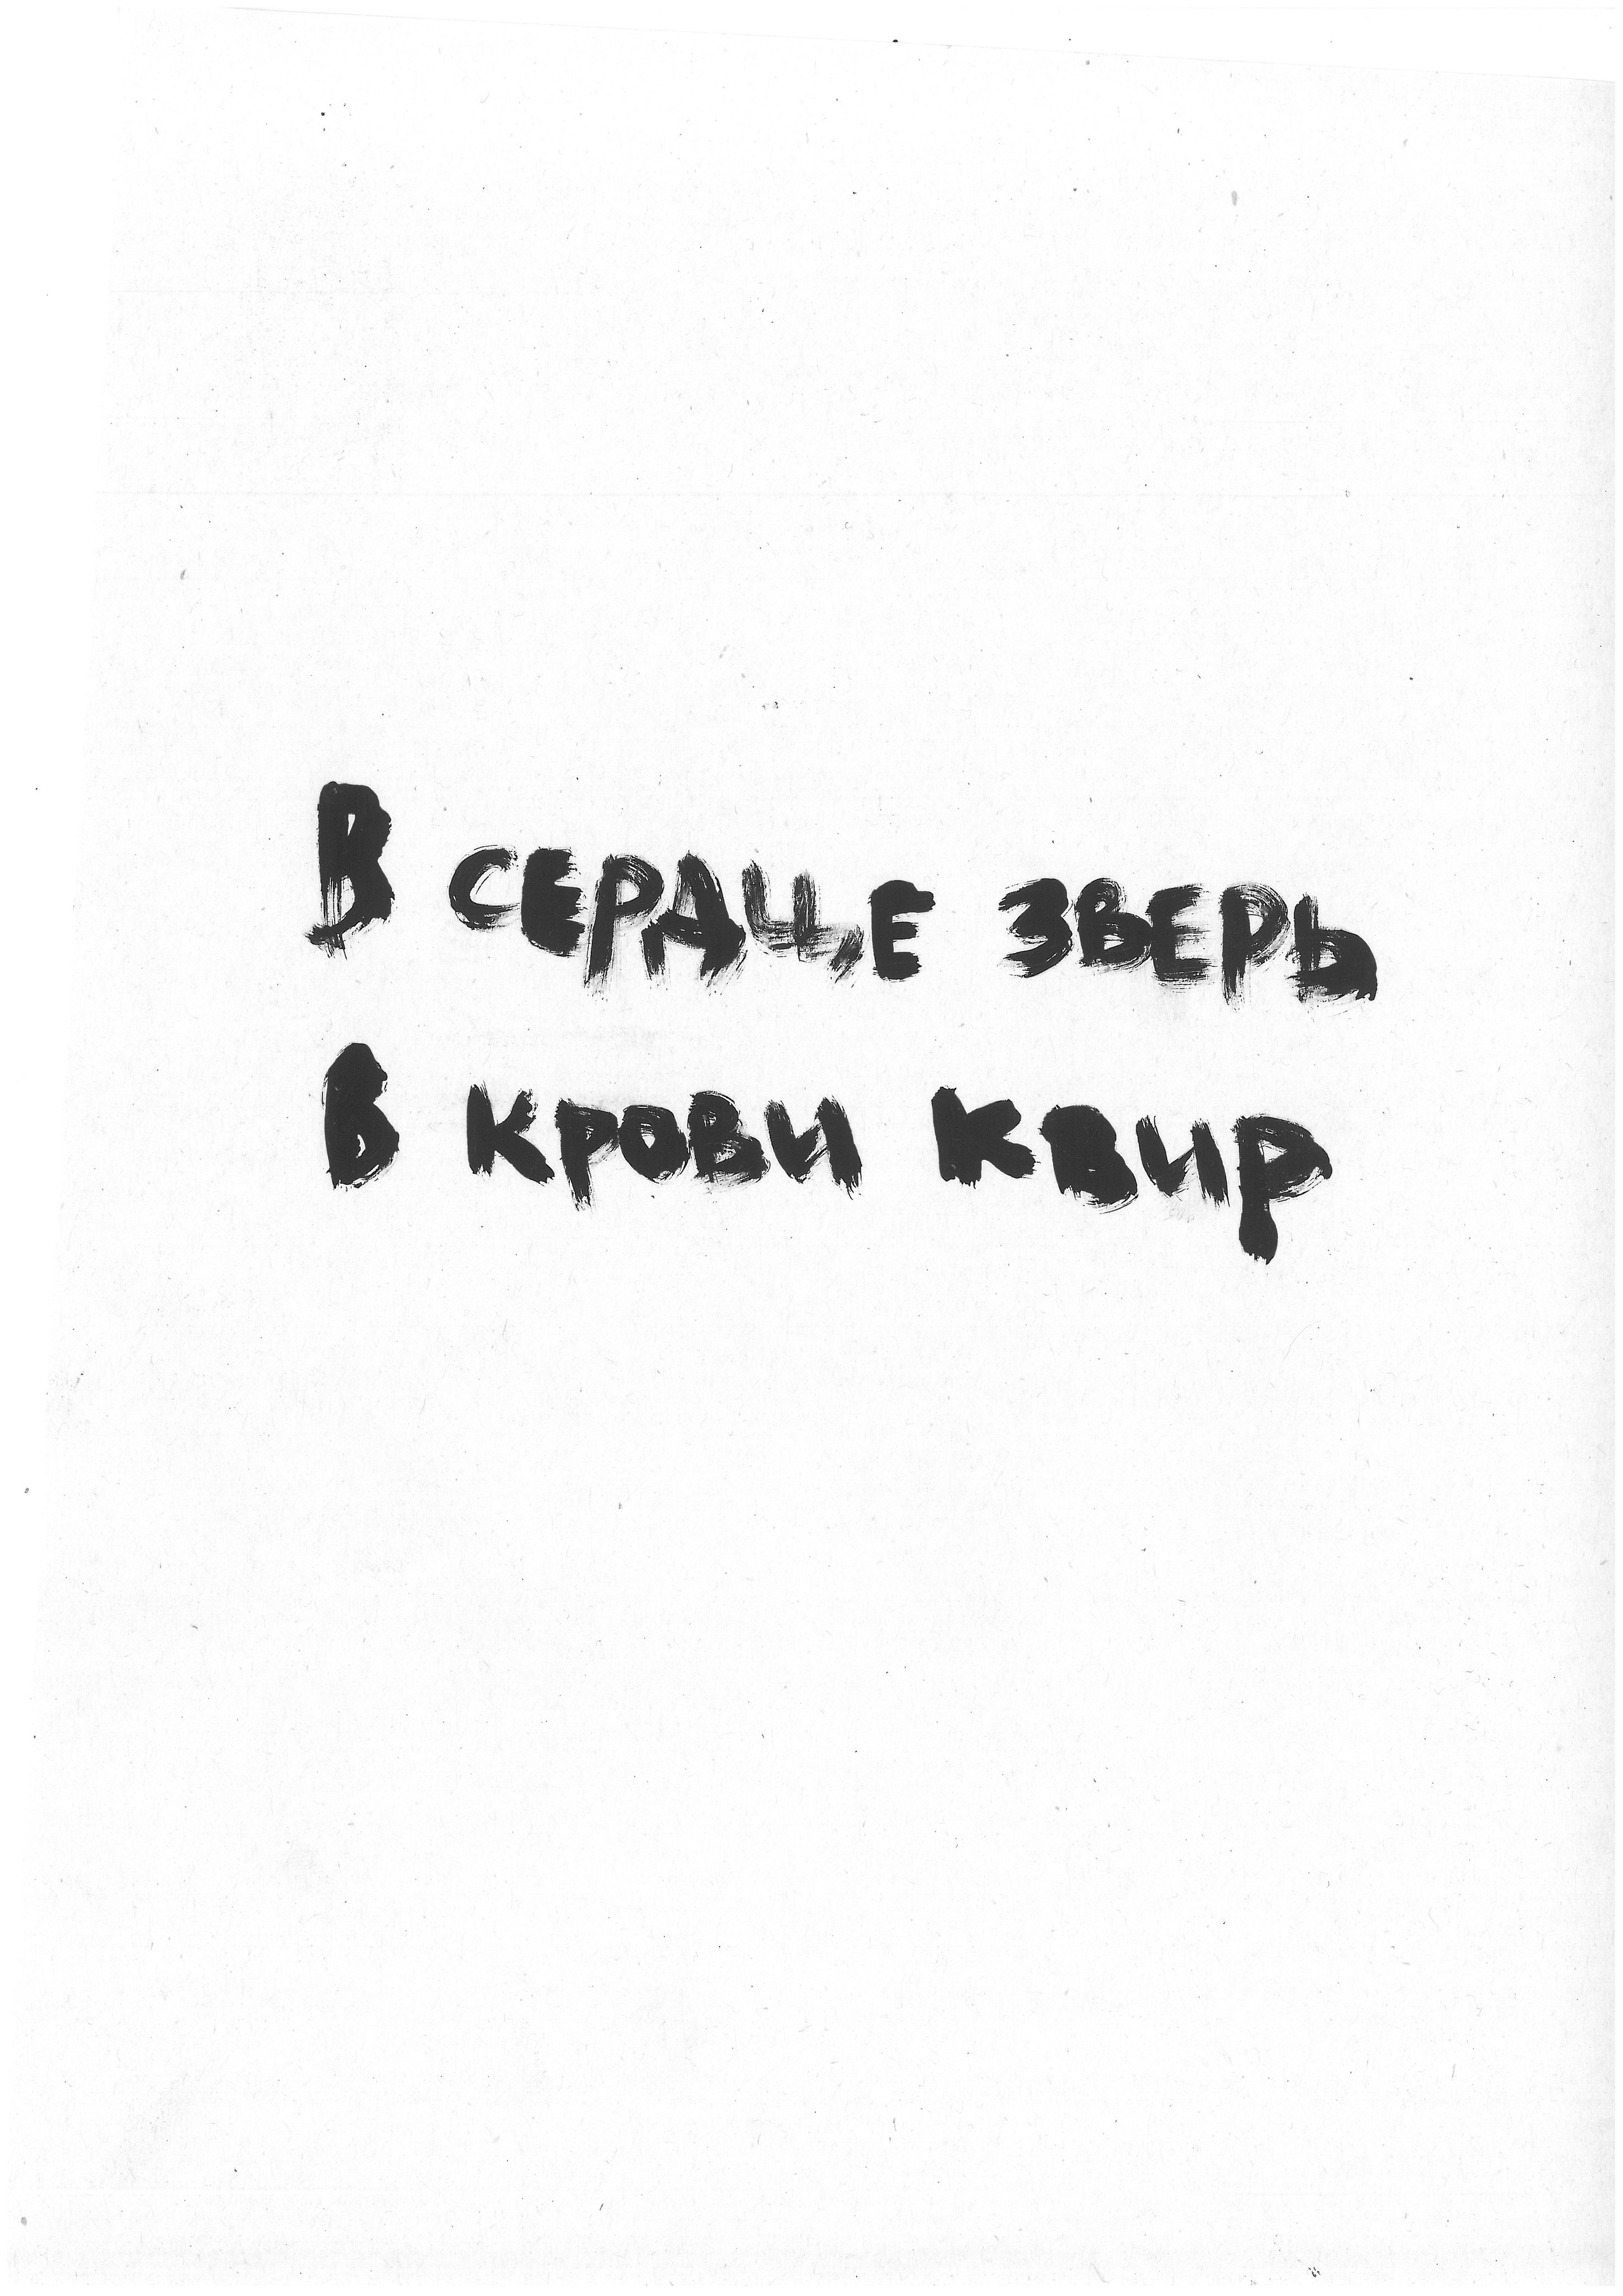 В сердце зверь
В крови квир